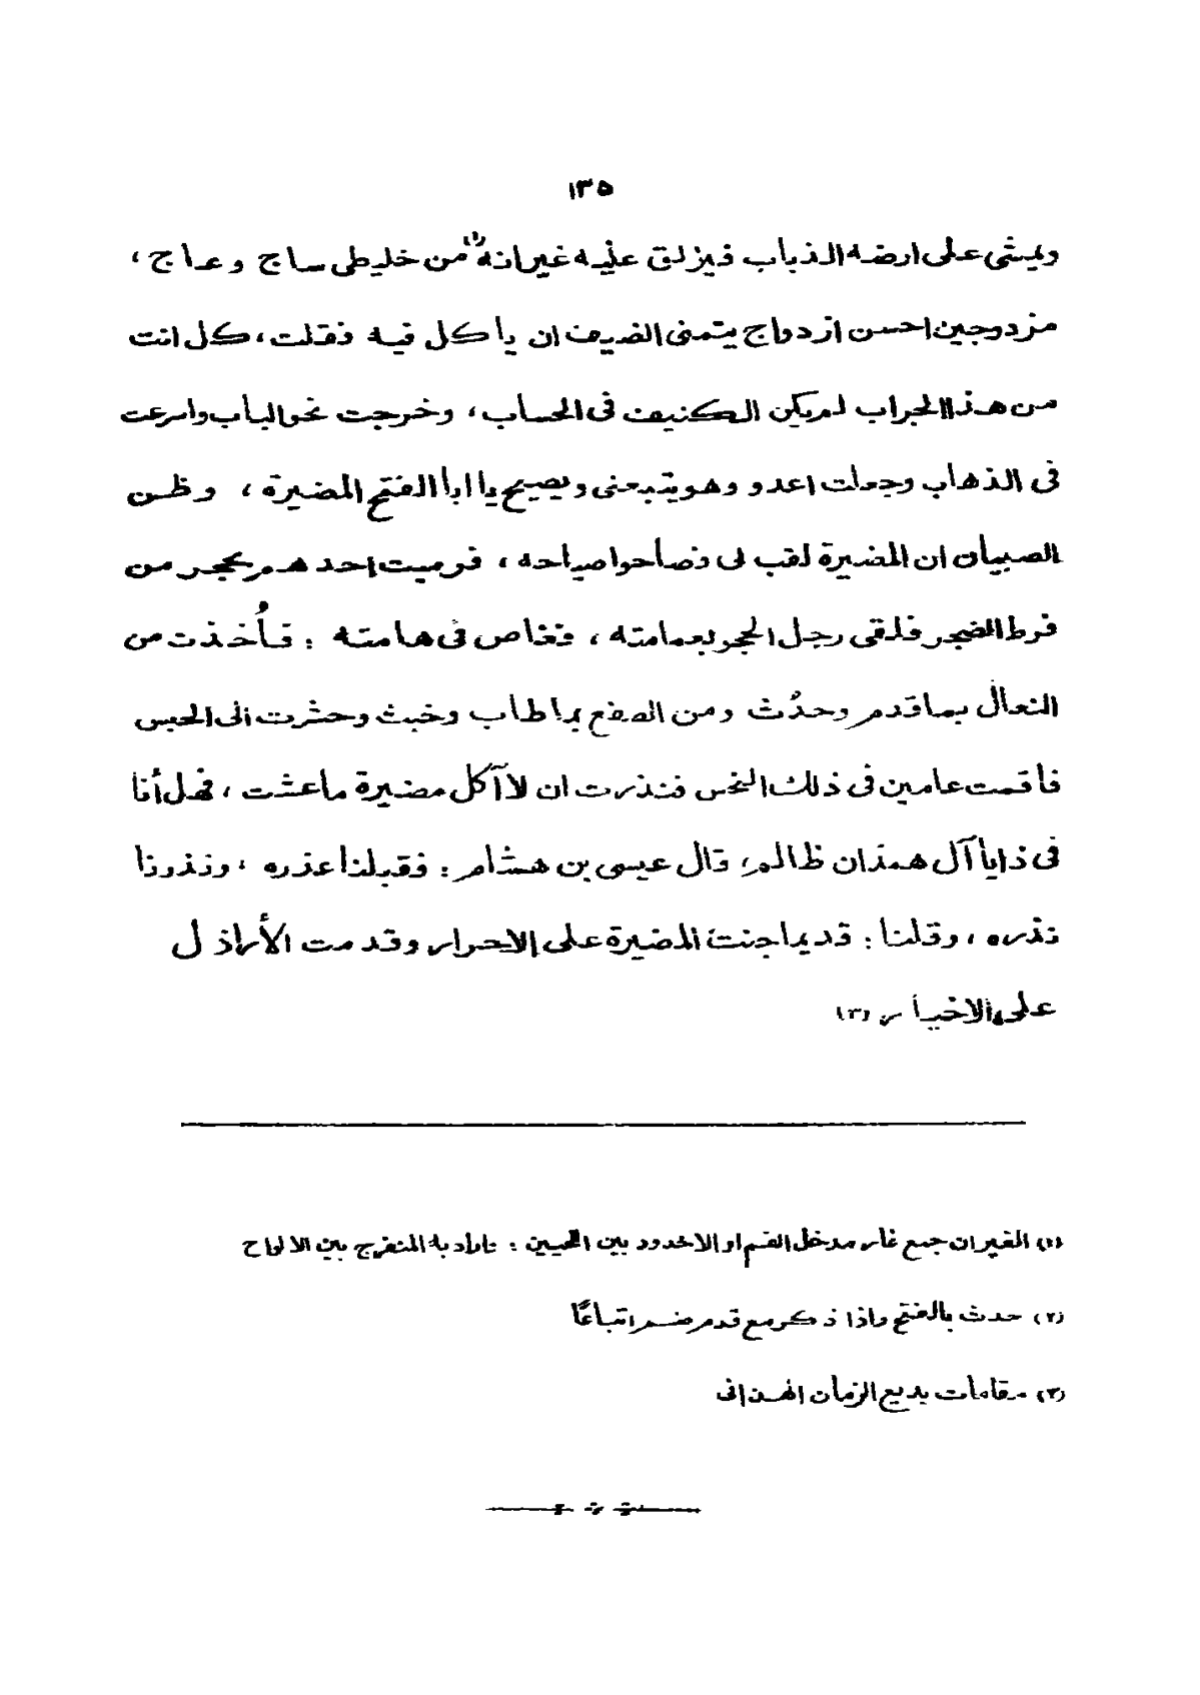 ١٣٥
ويمشى على ارضه الذباب فيزلق عليه غيرانه (١) من خليطى ساج وعاج ،
مزدوجين احسن ازدواج يتمنى الضيف ان يأكل فيه فقلت ، كل انت
من هذا الجراب لم يكن الكنيف فى الحساب ، وخرجت نحو الباب واسرعت
فى الذهاب وجعلت اعدو وهو يتبعنى ويصيح يا ابا الفتح المضيرة ، وظن
الصبيان ان المضيرة لقب لى فصاحوا صياحه ، فرميت احدهم بحجر من
فرط الضجر فلقى رجل الحجر بعمامته ، فغاص فى هامته : فأُخذت من
النعال بما قدم وحدُث ومن الصفع بما طاب وخبث وحشرت الى الحبس
فأقمت عامين فى ذلك النحس فنذرت ان لا آكل مضيرة ما عشت ، فهل أنا
فى ذا يا آل همذان ظالم ، قال عيسى بن هشام : فقبلنا عذره ، ونذرنا
نذره ، وقلنا : قديما جنت المضيرة على الاحرار وقدمت الأراذل
على الاخيار (٣)
(١) الغيران جمع غار مدخل الفم او الاخدود بين اللحيين : فاراد به المنفرج بين الالواح
(٢) حدث بالفتح واذا ذكر مع قدم ضم اتباعًا
(٣) مقامات بديع الزمان الهمذانى